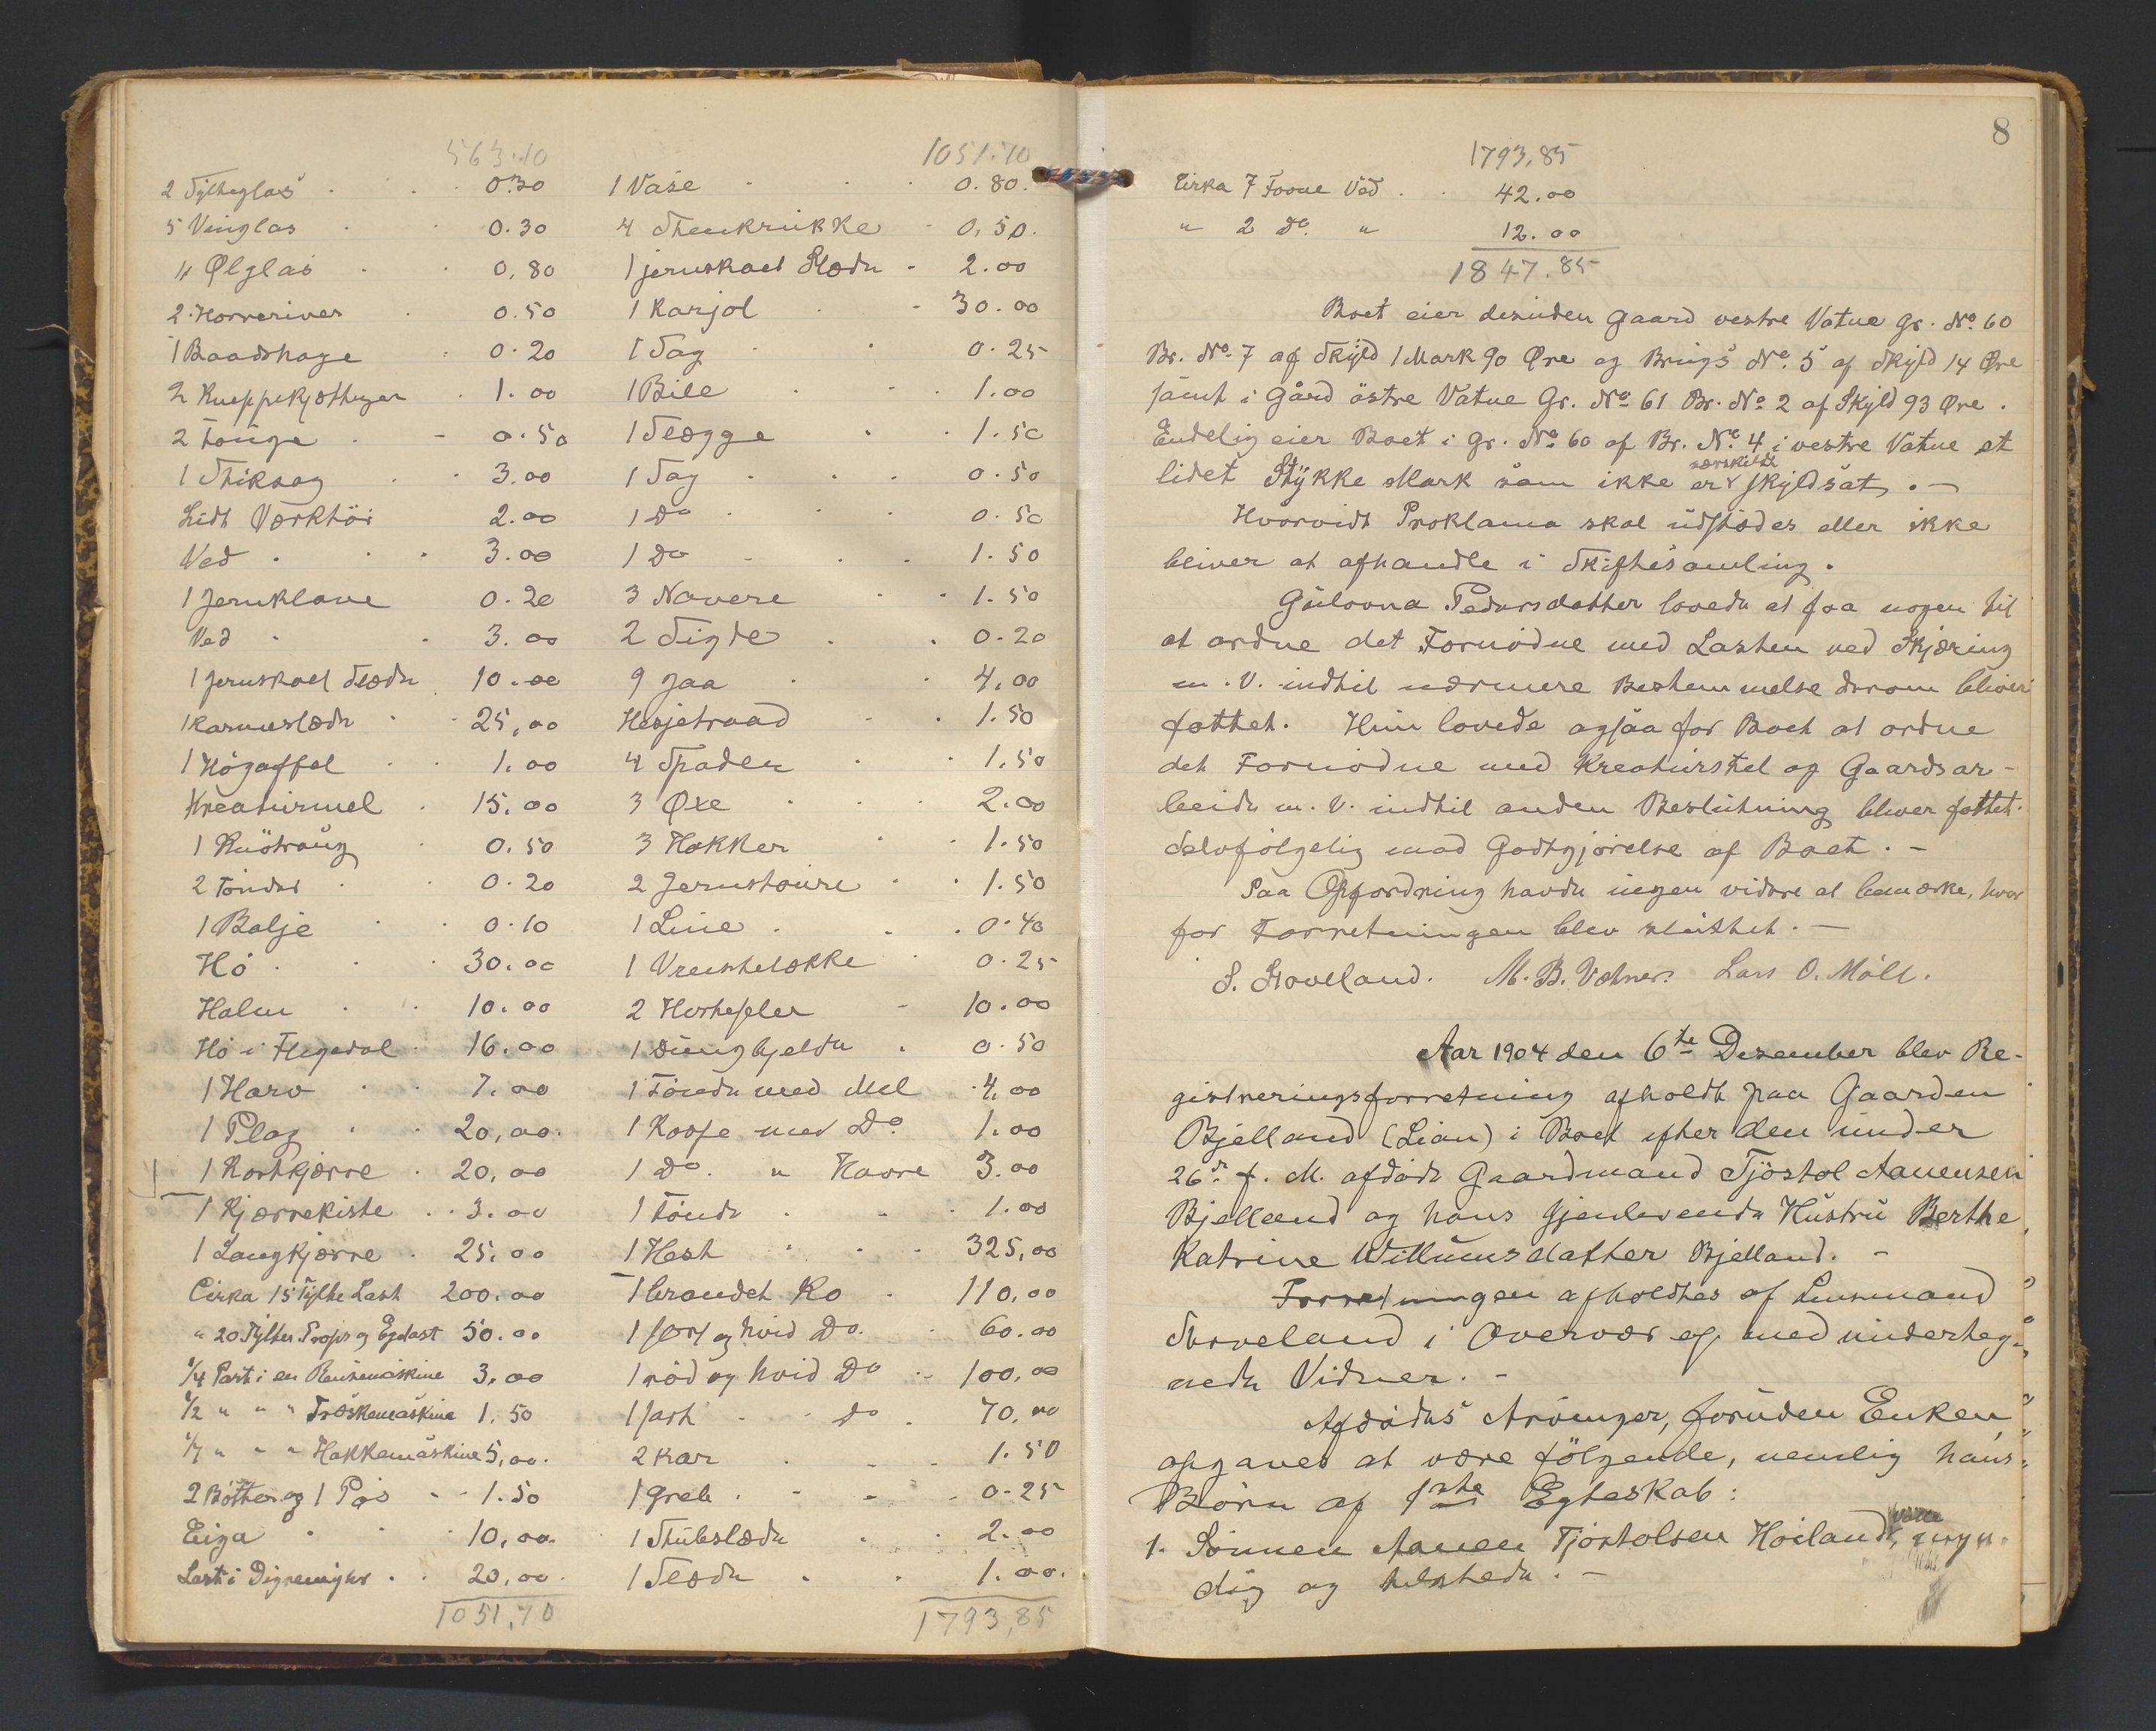 563.10
2 Syltheglas 0.30
5 Vinglas 0.30
4 Ølglas 0,80
2 Horveriver 0.50
1 Baadshage 0.20
2 1.00
2 Tønge 0.50
1 Stiksag 3.00
Lidt Værktöi 2.00
Ved 3.00
1 Jernklove 0.20
Ved 3.00
1 jernskoet Slæde 10.00
1 Karmeslæde 25,00
1 Högaffel 1.00
Kreaturmel 15.00
1 0.50
2 Tönder 0.20
1 Balje 0.10
Hö 30.00
Halm 10.00
Hö i Flegedal 16.00
1 Harv 7.00
1 Plog 20,00
1 Kortkjærre 20,00
1 Kjærrekiste 3.00
1 Langkjærre 25.00
Cirka 15 Tylte Last 200.00
" 20 Tylter Props og Egelast 50.00
1/4 Part i en Rensemaskine 3,00
1/2 " " " Træskemaskine 1,50
1/7 " " " Hakkemaskine 5,00.
2 Bötter og 1 Pøs 1.50
Eiga 10,00
Last i Digremyhr 20,00
1051,10
1051.10
1 Vase 0.80.
4 Stenkrukke 0,50.
1 jernskoet Slæde 2.00
1 Karjol 30.00
1 Sag 0.25
1 Bile 1.00
1 Slægge 1.50
1 Sag 0.50
1 Do 0.50
1 Do 1.50
3 Navere 1.50
2 Sigde 0.20
9 Jaa 4,00
Hesjetraad 1.50
4 Spader 1,50
3 Øxe 2.00
3 Hakker 1.50
2 Jernstöure 1.50
1 Line 0.40
1 0.25
2 Hesteseler 10.00
1 Düngbjelde 0.50
1 Tönde med Mel 4,00
1 Kasse med Do 1.00
1 Do. " Havre 3.00
1 Tönde 1.00
1 Hest 325,00
1 brandet Ko 110,00
1 sort og hvid Do. 60.00
1 röd og hvid Do 100,00
1 sort Do 70,00
2 Kar 1.50
1 Greb 0-25
1 Stubslæde 2.00
1 Slæde 1.00.
1793,85
8
1793,85
Cirka 7 Favne Ved 42.00
" 2 Do. " 12.00
1847.85
Boet eier desuden Gaard vestre Vatne Gr. No. 60
Br. No. 7 af Skyld 1 Mark 90 Øre og Brugs No. 5 af Skyld 14 Øre
samt i Gård östre Vatne Gr. No 61 Br. No 2 af Skyld 93 Øre.
Endelig eier Boet i Gr. No 60 af Br. No. 4 i vestre Vatne et
særskildt
lidet Stykke Mark som ikke er skyldsat. —
Hvorvidt Proklama skal udstædes eller ikke
bliver at afhandle i Skiftesamling.
Gulovna Pedersdatter lovede at faa nogen til
at ordne det Fornödne med Lasten ved Skjæring
m. V. indtil nærmere Bestemmelse derom bliver
fattet. Hun lovede ogsaa for Boet at ordne
det Fornödne med Kreaturstel og Gaardsar-
beide m. V. indtil anden Beslutning bliver fattet.
selvfölgelig mod Godtgjörelse af Boet. -
Paa Opfordring havde ingen videre at bemærke, hvor
for Forretningen blev sluttet. —
S. Stoveland. M. B. Lars O. Möll.
Aar 1904 den 6te Desember blev Re-
gistreringsforretning afholdt paa Gaarden
Bjelland (Lian) i Boet efter den under
26de f. M. afdöde Gaardmand Tjöstol Aanensen
Bjelland og hans gjenlevende Hustru Berthe
Katrine Willumsdatter Bjelland. -
Forretningen afholdtes af Lensmand
Stoveland i Overvær af medunderteg-
nede Vidner. -
Afdödes Arvinger, foruden Enken,
opgaves at være fölgende, nemlig hans
Börn af 1ste Egteskab:
1. Sönnen Aanen Tjöstolsen Höiland, myn-
dig og tilstede. -